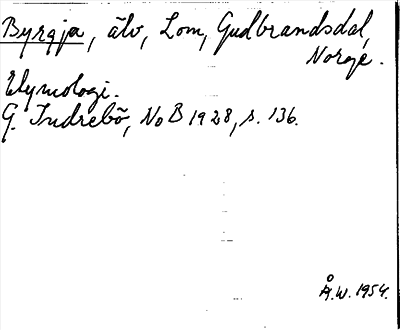 Byrgja, älv, Lom, Gudbrandsdal,
Norge.
Etymologi.
G. Indrebö, NoB 1928, s. 136.
Å.W. 1954.